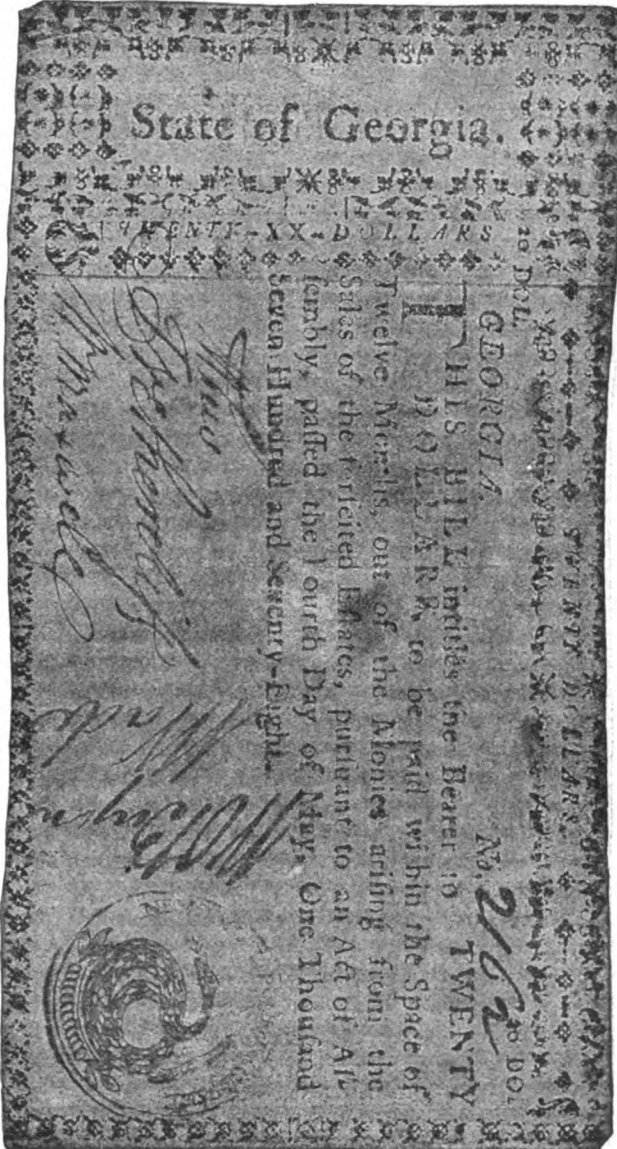 State of Georgia.
TWENTY-XX-DOLLARS
TWENTY DOLLARS.
20 DOL.
20 DOL
GEORGIA.
No. 2162
THIS BILL intitles the Bearer to TWENTY
DOLLARS, to be paid within the Space of
Twelve Months, out of the Monies arising from the
Sales of the forfeited Estates, pursuant to an Act of As-
sembly, passed the Fourth Day of May, One Thousand
Seven Hundred and Seventy-Eight.
Wm Maxwell
Wade